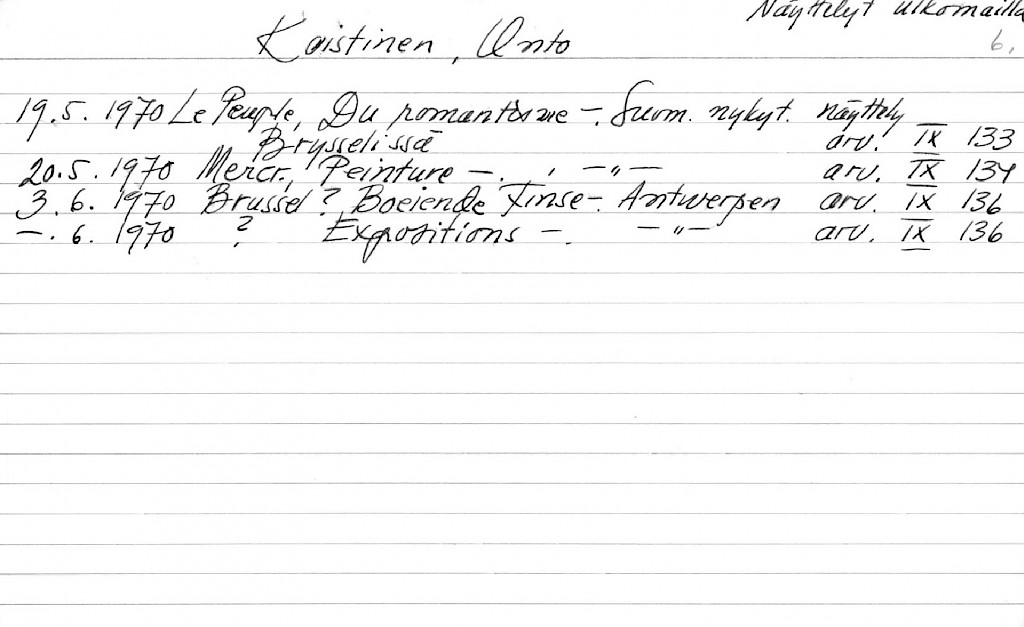 Näyttelyt ulkomailla
6.
Koistinen, Unto
19.5. 1970 Le Peuple, Du romantisme –. Suom. nykyt. näyttely
Brysselissä arv. IX 133
20.5. 1970 Mercr., Peinture –. , –"– arv. IX 134
3.6. 1970 Brussel? Boeiende Finse –. Antwerpen arv. IX 136
–.6. 1970 ? Expositions –. –"– arv. IX 136